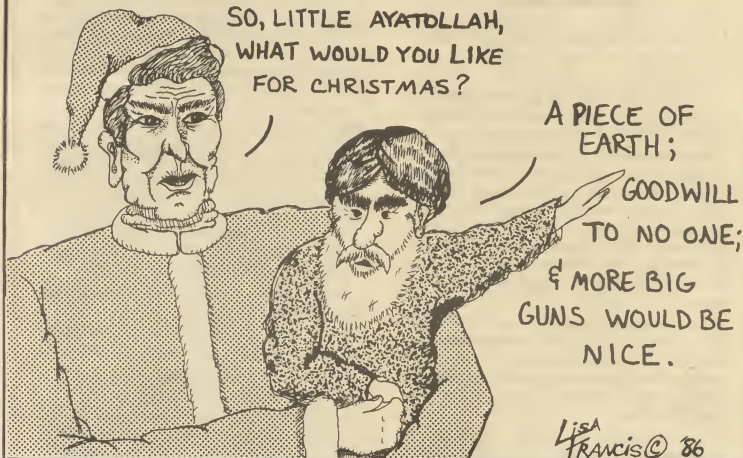 SO, LITTLE AYATOLLAH,
WHAT WOULD YOU LIKE
FOR CHRISTMAS?
A PIECE OF
EARTH;
GOODWILL
TO NO ONE;
& MORE BIG
GUNS WOULD BE
NICE.
LISA
FRANCIS © '86